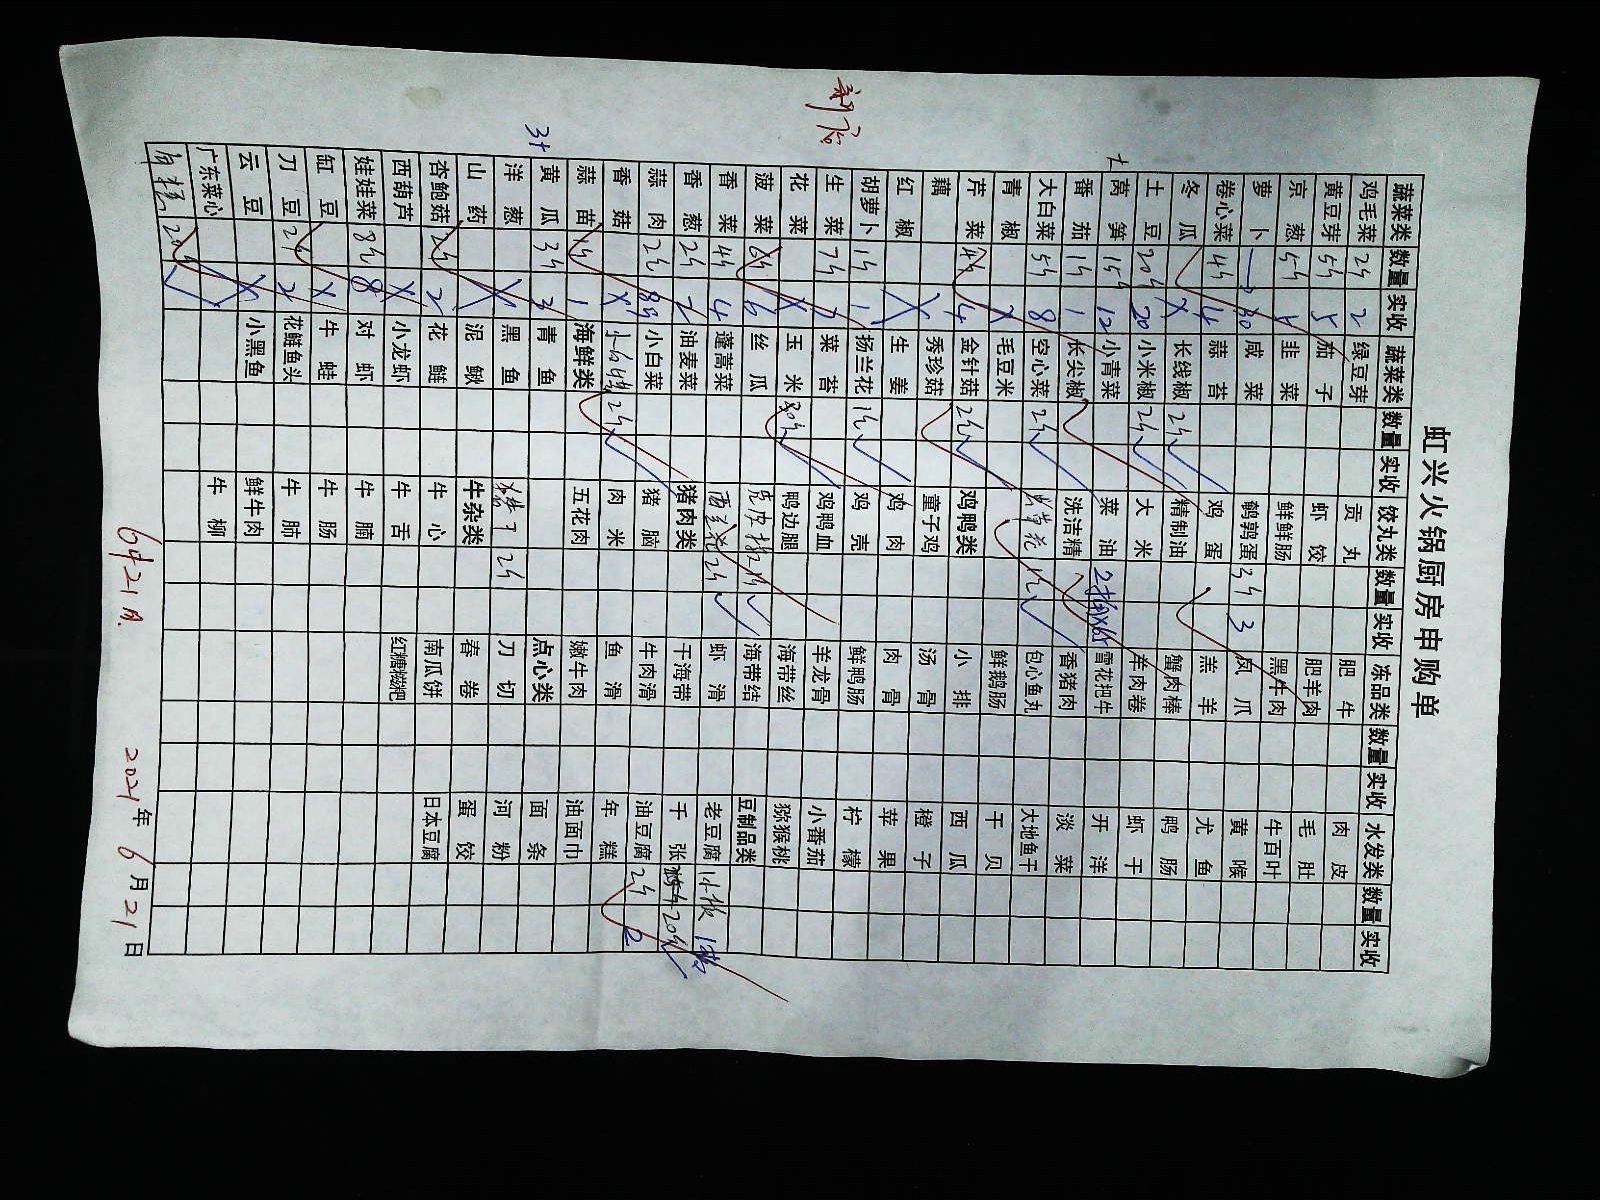 虹兴火锅厨房申购单
新店
蔬菜类 数量 实收 蔬菜类 数量 实收 饺丸类 数量 实收 冻品类 数量 实收 水发类 数量 实收
鸡毛菜 2斤 2 绿豆芽 贡丸 肥牛 肉皮
黄豆芽 5斤 5 茄子 虾饺 肥羊肉 毛肚
京葱 5斤 韭菜 鲜鲜肠 黑牛肉 牛百叶
萝卜 咸菜 鹌鹑蛋 3斤 3 凤爪 黄喉
卷心菜 4斤 4 蒜苔 鸡蛋 羔羊 尤鱼
冬瓜 X 长线椒 2斤 ✓ 精制油 蟹肉棒 鸭肠
土豆 20斤 20 小米椒 2斤 ✓ 大米 羊肉卷 虾干
莴笋 15斤 12 小青菜 菜油 雪花把牛 开洋
番茄 1斤 1 长尖椒 洗洁精 香猪肉 淡菜
大白菜 5斤 8 空心菜 2斤 ✓ 包心鱼丸 大地鱼干
青椒 X 毛豆米 鲜鹅肠 干贝
芹菜 4斤 4 金针菇 2斤 ✓ 鸡鸭类 小排 西瓜
藕 X 秀珍菇 童子鸡 汤骨 橙子
红椒 X 生姜 鸡肉 肉骨 苹果
胡萝卜 1斤 1 扬兰花 1斤 ✓ 鸡壳 鲜鸭肠 柠檬
生菜 7斤 7 菜苔 鸡鸭血 羊龙骨 小番茄
花菜 X 玉米 ✓ 鸭边腿 海带丝 猕猴桃
菠菜 6斤 6 丝瓜 海带结 豆制品类
香菜 4斤 4 蓬蒿菜 西兰花 2斤 ✓ 虾滑 老豆腐
香葱 2斤 2 油麦菜 猪肉类 干海带 千张 20斤 ✓
蒜肉 2斤 小白菜 猪脑 牛肉滑 油豆腐 2斤 2
香菇 X 2斤 ✓ 肉米 鱼滑 年糕
蒜苗 1斤 1 海鲜类 五花肉 嫩牛肉 油面巾
黄瓜 3斤 3 青鱼 点心类 面条
洋葱 X 黑鱼 2斤 刀切 河粉
山药 X 泥鳅 牛杂类 春卷 蛋饺
杏鲍菇 2斤 2 花鲢 牛心 南瓜饼 日本豆腐
西葫芦 X 小龙虾 牛舌 红糖糍粑
娃娃菜 8斤 8 对虾 牛腩
缸豆 X 牛蛙 牛肠
刀豆 2斤 2 花鲢鱼头 牛肺
云豆 X 小黑鱼 鲜牛肉
广东菜心 牛柳
6月21日.
2021年6月21日